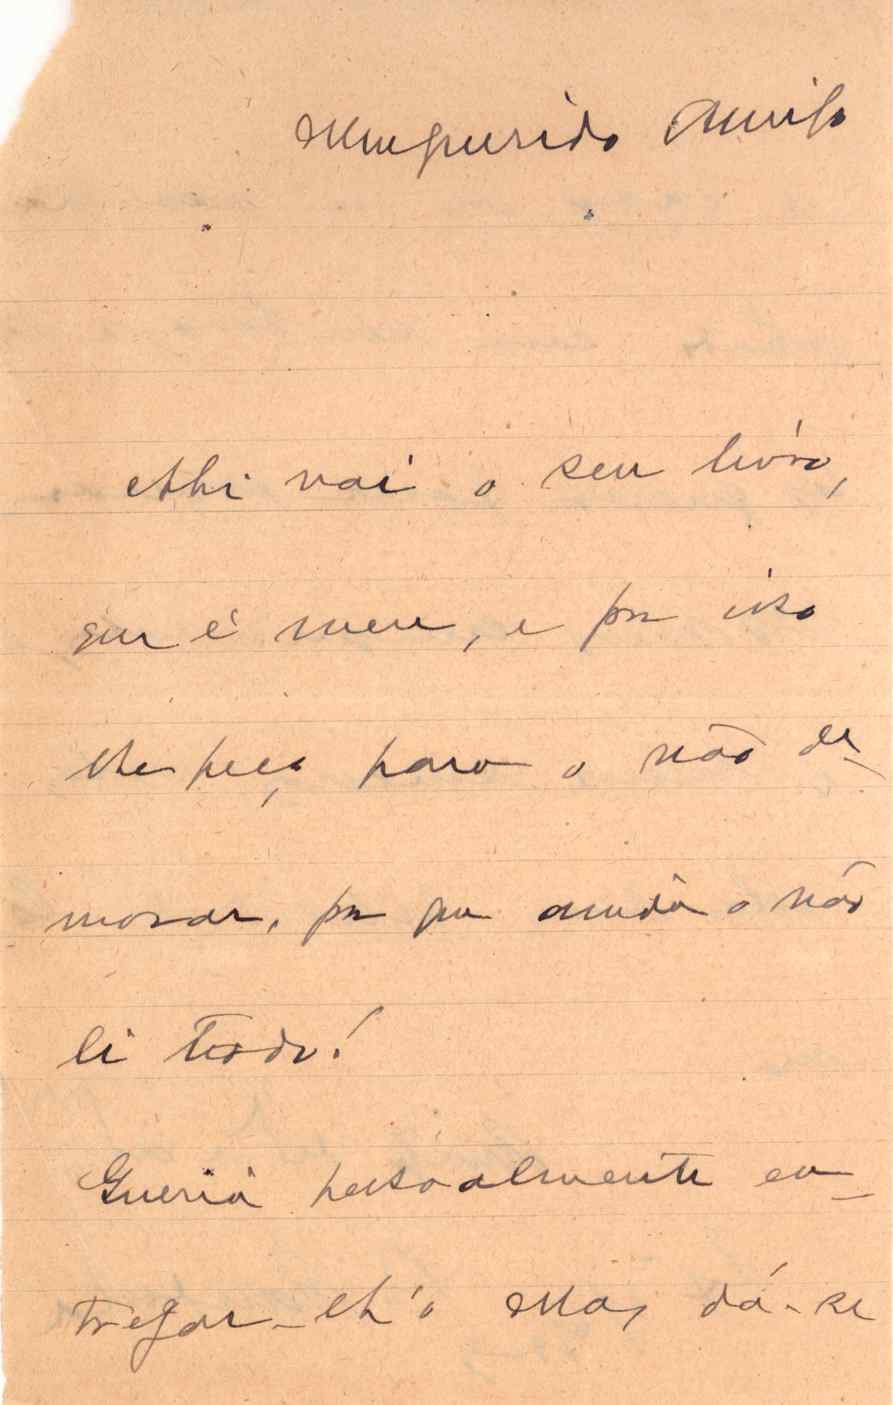 Meu querido Amigo
Ahi vai o seu livro,
que é meu, e por isso
lhe peço para o não de-
morar, por que ainda o não
li todo!
Queria pessoalmente en-
tregar-lh'o Mas, dá-se